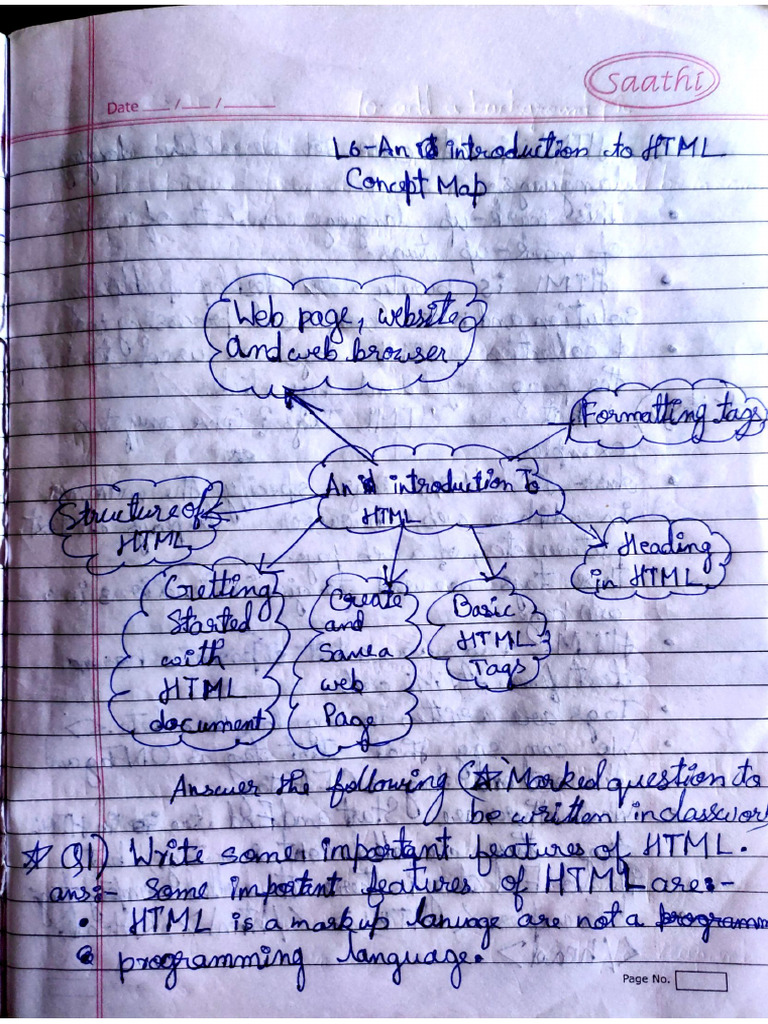 saathi
Date __/__/__
L6-An introduction to HTML
Concept Map
Web page, website
and web browser
Formatting tags
An introduction To
HTML
Structure of
HTML
Heading
in HTML
Getting
Started
with
HTML
document
Create
and
Save a
web
Page
Basic
HTML
Tags
Answer the following (☆ Marked question to
be written in classwor
☆ Q1) Write some important features of HTML.
ans:- Some important features of HTML are:-
• HTML is a markup lanunge are not a programm
• programming language.
Page No.